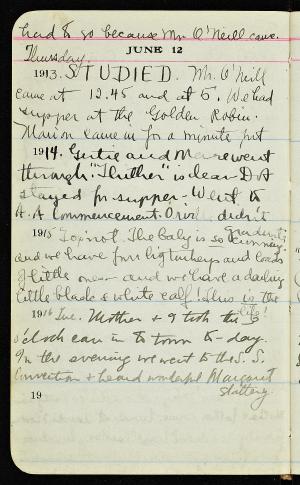 had to go because Mr. O'Neill came.
JUNE 12
Thursday.
1913. STUDIED. Mr. O'Neill
came at 12.45 and at 5. We had
supper at the Golden Robin.
Marion came in for a minute just
1914. Gertie and Marie went
through. "Thither" is clear Dot
stayed for supper. Went to
A. A Commencement. didn't
graduate
1915 Topnot. The baby is so cunning
and we have four big turkeys and loads
of little ones and we have a darling
little black & white calf! This is the
life!
1916 Mother & I took the 3
o'clock car in to town to-day.
In the evening we went to the S. S.
Convention & heard wonderful Margaret
Slattery.
19